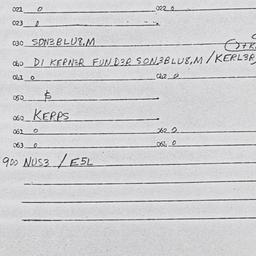 021 0 022 0
023 0
030 SON3BLU8,M
040 DI KERN3R FUND3R SON3BLU8,M / KERL3R
041 0 042 0
050 $
060 KERPS
061 0 062 0
063 0 064 0
900 NUS3 / E5L